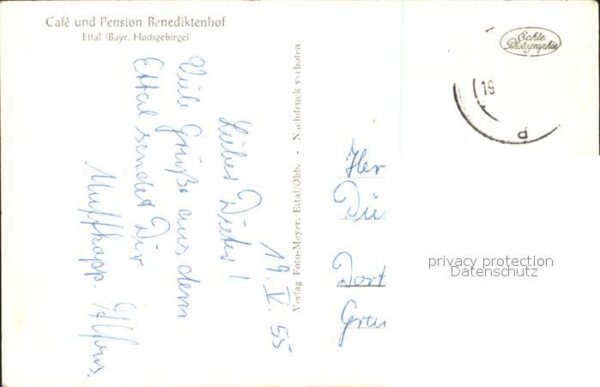 Café und Pension Benediktenhof
Ettal (Bayr. Hochgebirge)
Echte
Photographie
19
P
19. V. 55
Lieber Dieter!
Viele Grüße aus dem
Ettal sendet Dir
Alfons.
Verlag Foto-Meyer, Ettal/Obb. - Nachdruck verboten
Her
Dü
Dort
Gra
privacy protection
Datenschutz